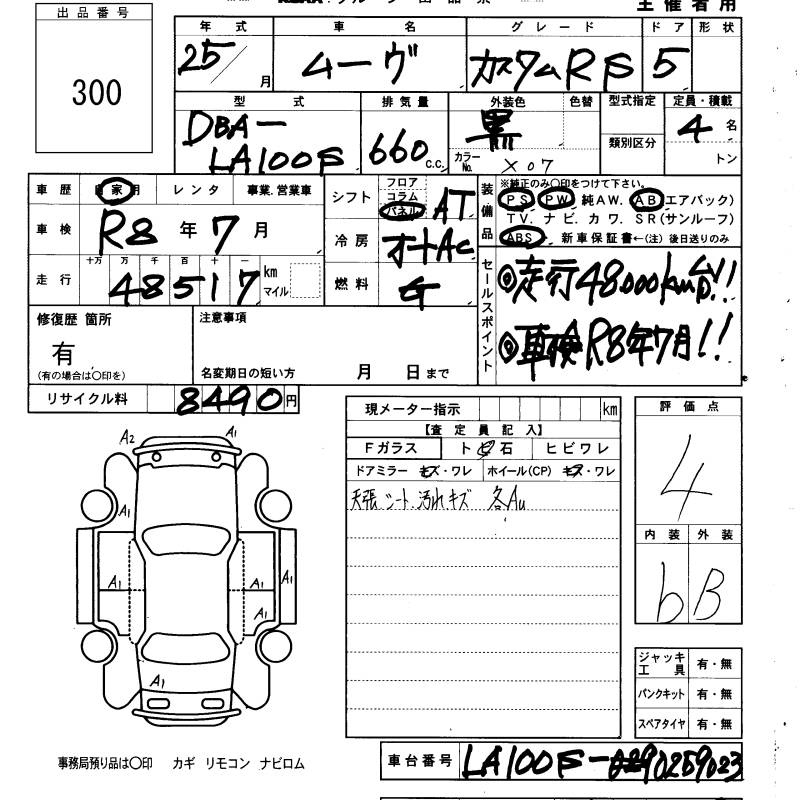 主催者用
出品番号
300
年式 車名 グレード ドア 形状
25/ 月 ムーヴ カスタムRS 5
型式 排気量 外装色 色替 型式指定 定員・積載
DBA-
LA100S 660 c.c. 黒 類別区分 4 名
カラーNo. X07 トン
車歴 自家用 レンタ 事業.営業車
車検 R8 年 7 月
走行 十万 万 千 百 十 一
48517 km マイル
シフト フロア コラム パネル AT
冷房 オートAC
燃料
装備品 ※純正のみ〇印をつけて下さい。
PS PW 純AW. AB エアバック)
TV. ナビ. カワ. SR(サンルーフ)
ABS 新車保証書←(注) 後日送りのみ
セールスポイント
◎走行48,000km台!!
◎車検R8年7月!!
修復歴 箇所
有
(有の場合は〇印を)
注意事項
名変期日の短い方 月 日まで
リサイクル料 8490 円
現メーター指示 km
【査定員記入】
Fガラス ト ビ 石 ヒビワレ
ドアミラー キズ・ワレ ホイール(CP) キズ・ワレ
天張 シート 汚れ キズ 各AU
評価点
4
内装 外装
b B
A2 A1
A1
A1 A1 A1
A1
A1
ジャッキ
工具 有・無
パンクキット 有・無
スペアタイヤ 有・無
事務局預り品は〇印 カギ リモコン ナビロム
車台番号 LA100S-0259023